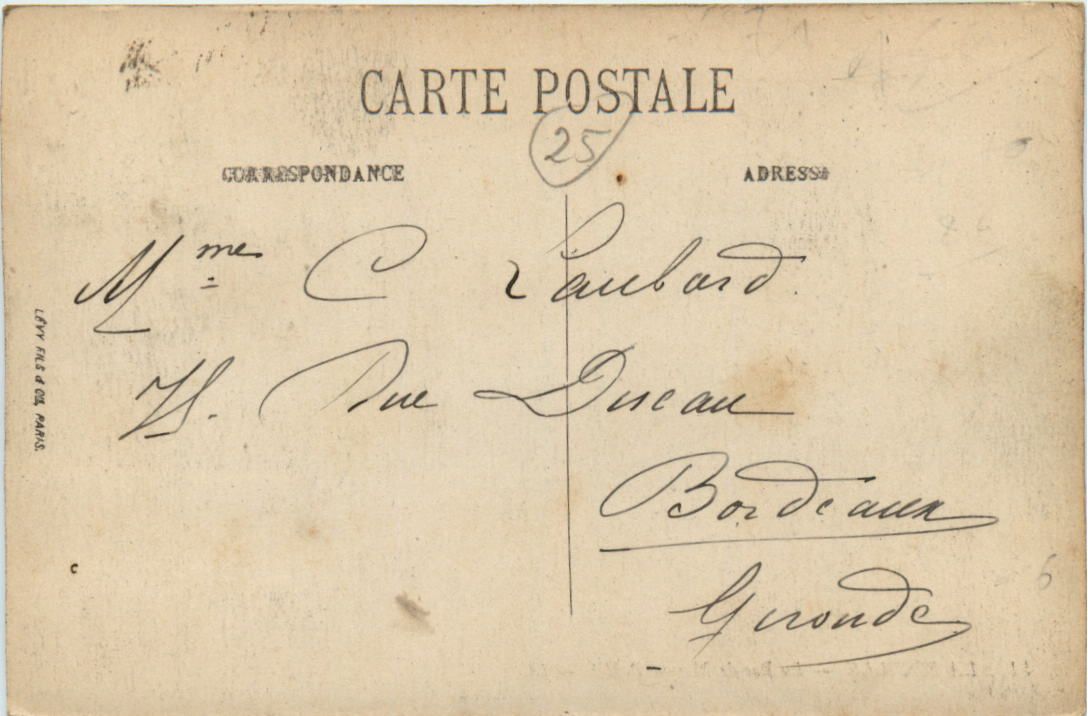 CARTE POSTALE
25
CORRESPONDANCE
ADRESSE
Mme C Laubard
Rue Ducau
Bordeaux
Gironde
LÉVY FILS & Cie, PARIS.
6